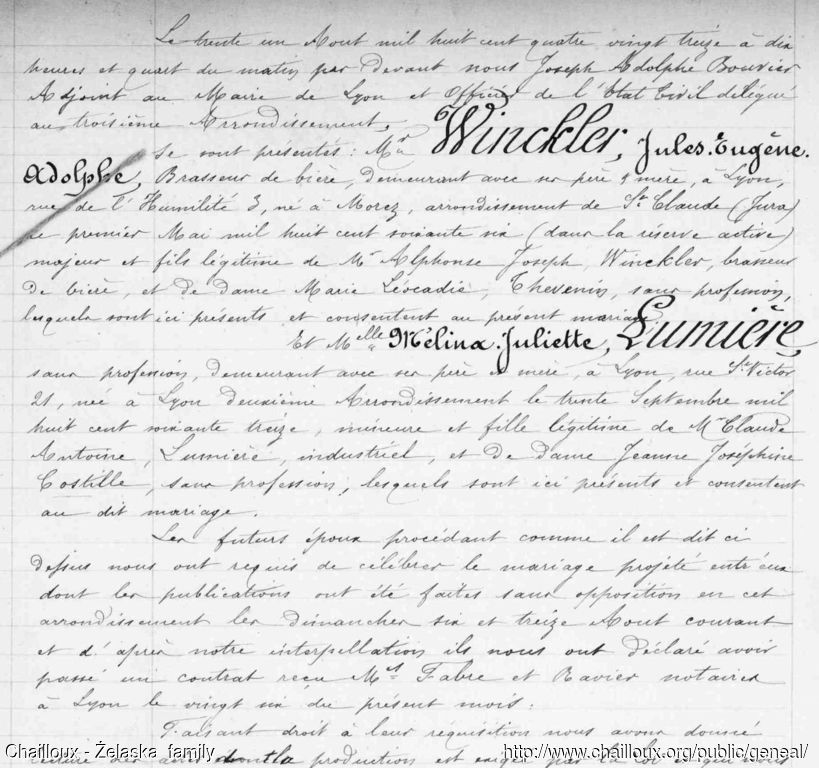 Le trente un Aout mil huit cent quatre vingt treize à dix
heures et quart du matin par devant nous Joseph Adolphe Bouvier
Adjoint au Maire de Lyon et Officier de l'Etat Civil délégué
au troisième Arrondissement,
Se sont présentés: Mr Winckler, Jules. Eugène.
Adolphe, Brasseur de bière, demeurant avec ses père & mère, à Lyon,
rue de l'Humilité 3, né à Morez, arrondissement de St Claude (Jura)
le premier Mai mil huit cent soixante six (dans la réserve active)
majeur et fils légitime de Mr Alphonse Joseph, Winckler, brasseur
de bière, et de Dame Marie Léocadie, Thevenin, sans profession,
lesquels sont ici présents et consentent au présent mariage,
Et Melle Mélina. Juliette, Lumière,
sans profession, demeurant avec ses père et mère, à Lyon, rue St Victor
21, née à Lyon deuxième Arrondissement le trente Septembre mil
huit cent soixante treize, mineure et fille légitime de Mr Claude
Antoine, Lumière, industriel, et de Dame Jeanne Joséphine
Costille, sans profession, lesquels sont ici présents et consentent
au dit mariage.
Les futurs époux procédant comme il est dit ci
dessus nous ont requis de célébrer le mariage projeté entr'eux
dont les publications ont été faites sans opposition en cet
arrondissement les dimanches six et treize Aout courant
et d'après notre interpellation ils nous ont déclaré avoir
passé un contrat reçu Mes Fabre et Ravier notaires
à Lyon le vingt six du présent mois.
Faisant droit à leur réquisition nous avons donné
lecture des actes dont la production est exigée par la loi et qui nous
Chailloux - Żelaska family
http://www.chailloux.org/public/geneal/